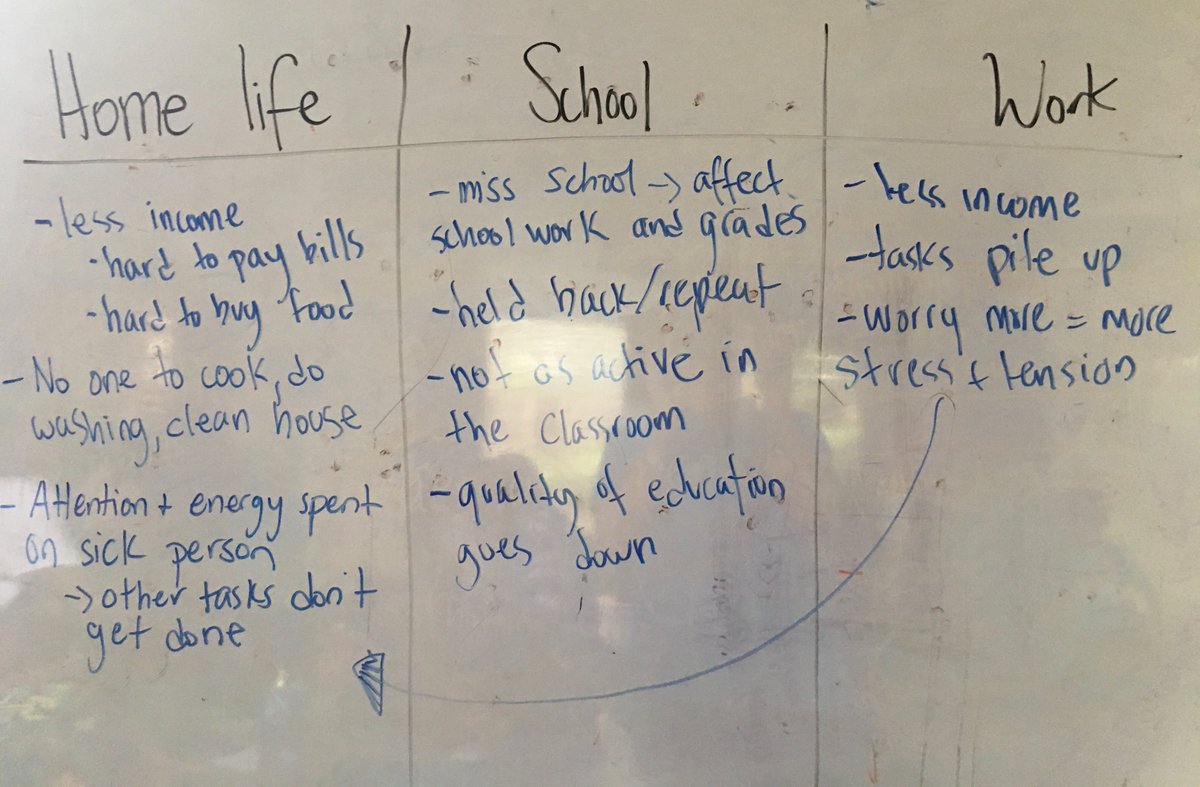 Home life
- less income
· hard to pay bills
· hard to buy food
- No one to cook, do
washing, clean house
- Attention + energy spent
on sick person
→ other tasks don't
get done
School
- miss school → affect
school work and grades
- held back/repeat
- not as active in
the classroom
- quality of education
goes down
Work
- less income
- tasks pile up
- worry more = more
stress + tension